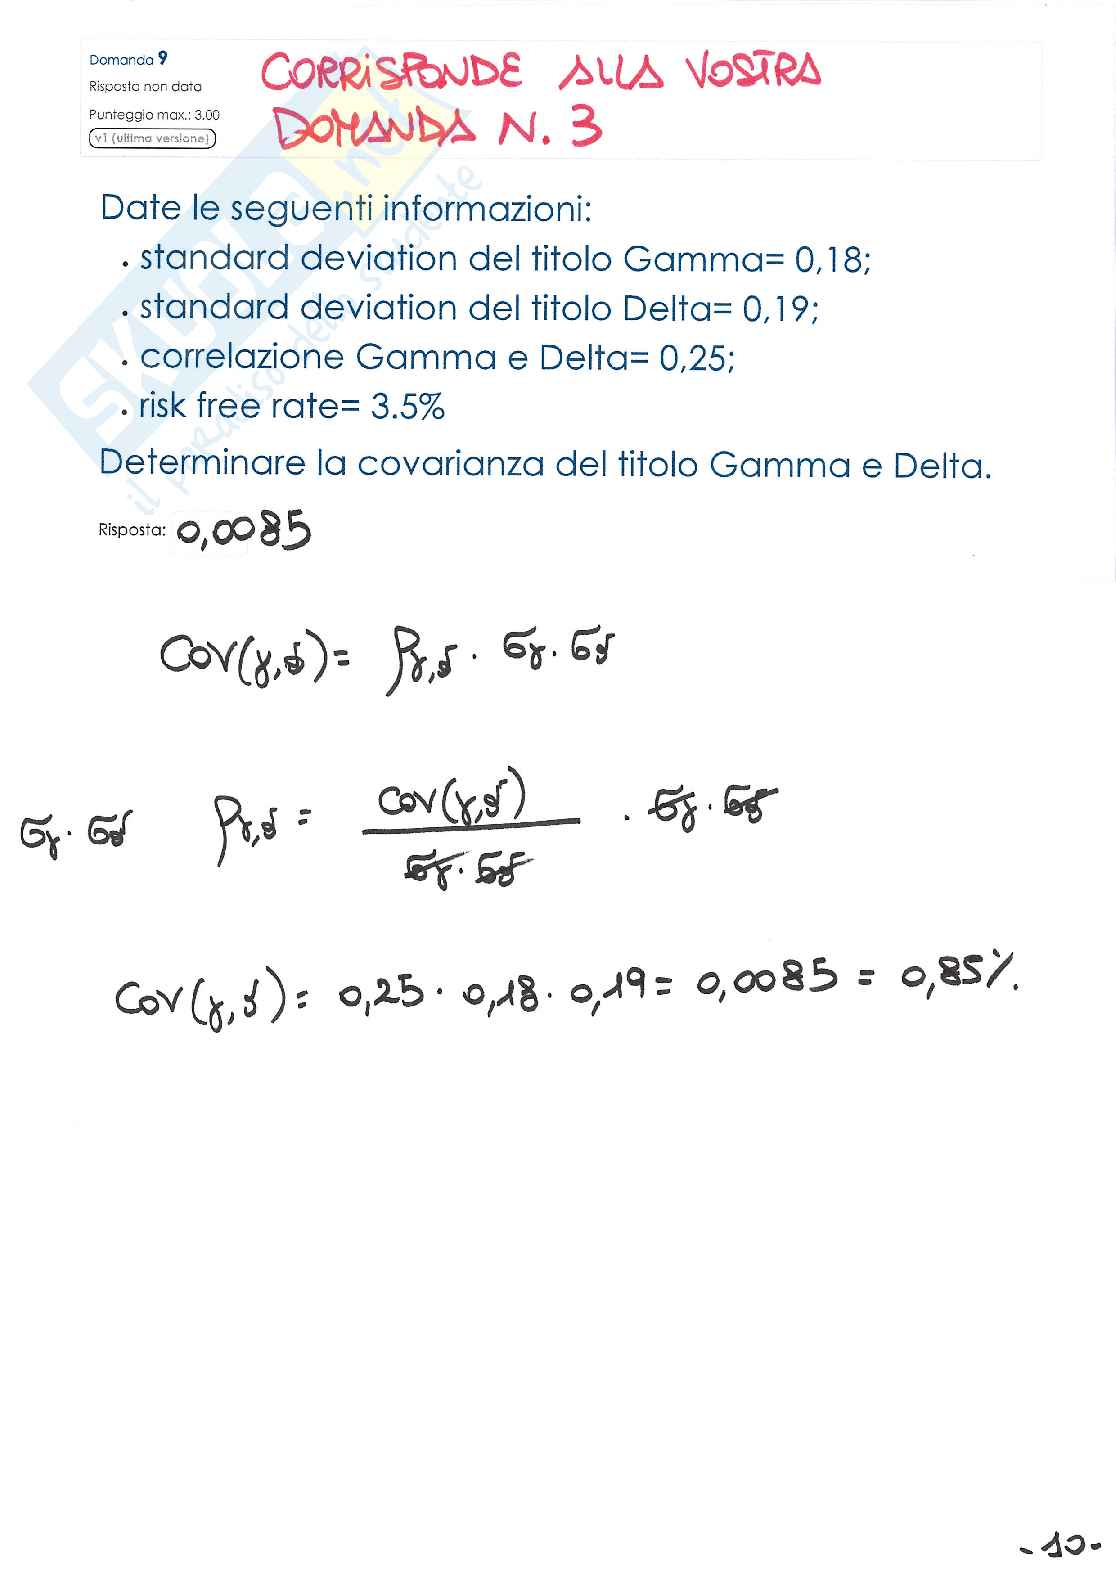 Domanda 9
Risposta non data
Punteggio max.: 3.00
v1 (ultima versione)
CORRISPONDE ALLA VOSTRA
DOMANDA N. 3
SKUOLA.net
il paradiso dello studente
Date le seguenti informazioni:
. standard deviation del titolo Gamma= 0,18;
. standard deviation del titolo Delta= 0,19;
. correlazione Gamma e Delta= 0,25;
. risk free rate= 3.5%
Determinare la covarianza del titolo Gamma e Delta.
Risposta: 0,0085
Cov(γ,δ)= ργ,δ · σγ · σδ
σγ · σδ ργ,δ = cov(γ,δ) / σγ · σδ · σγ · σδ
Cov(γ,δ)= 0,25 · 0,18 · 0,19 = 0,0085 = 0,85%.
-10-